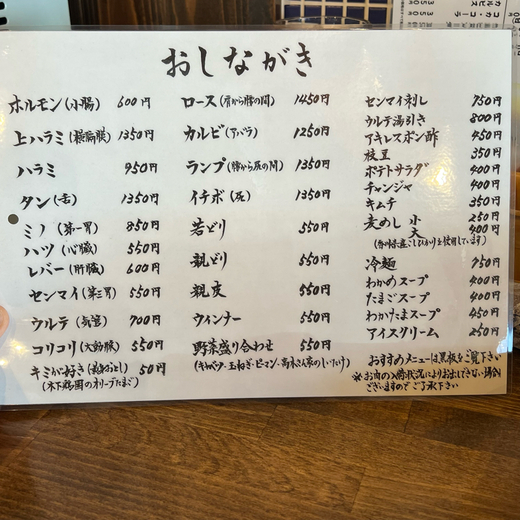 おしながき
ホルモン(小腸) 600円
上ハラミ(横隔膜) 1350円
ハラミ 950円
タン(舌) 1350円
ミノ(第一胃) 850円
ハツ(心臓) 550円
レバー(肝臓) 600円
センマイ(第三胃) 550円
ウルテ(気管) 700円
コリコリ(大動脈) 550円
キミが好き(黄身おとし) 50円
(木下鶏園のオリーブたまご)
ロース(肩から腰の間) 1450円
カルビ(アバラ) 1250円
ランプ(腰から尻の間) 1350円
イチボ(尻) 1350円
若どり 550円
親どり 550円
親皮 550円
ウィンナー 550円
野菜盛り合わせ 550円
(キャベツ・玉ねぎ・ピーマン・高木さん家のしいたけ)
センマイ刺し 750円
ウルテ湯引き 800円
アキレスポン酢 450円
枝豆 350円
ポテトサラダ 400円
チャンジャ 400円
キムチ 350円
麦めし 小 250円
大 400円
(香川県産こしひかりを使用しています)
冷麺 750円
わかめスープ 400円
たまごスープ 400円
わかたまスープ 450円
アイスクリーム 250円
おすすめメニューは黒板をご覧下さい
※お肉の入荷状況によりお出しできない場合が
ございますのでご了承下さい
カルピス 350
コカ・コーラ 350